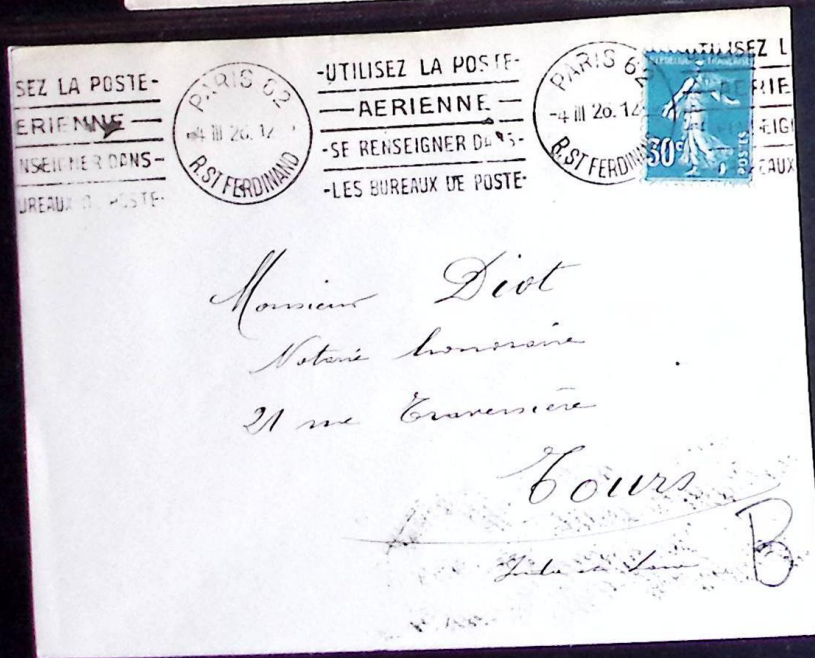 SEZ LA POSTE-
ERIENNE-
NSEIGNER DANS-
UREAUX POSTE-
PARIS 62
-4 III 26. 12
R. ST FERDINAND
-UTILISEZ LA POSTE-
-AERIENNE-
-SE RENSEIGNER DANS-
-LES BUREAUX DE POSTE-
PARIS 62
-4 III 26. 12
R. ST FERDINAND
UTILISEZ L
ERIE
EIG
EAUX
30c
POSTES
Monsieur Diot
Notaire honoraire
21 rue Traversière
Tours
Indre et Loire
B